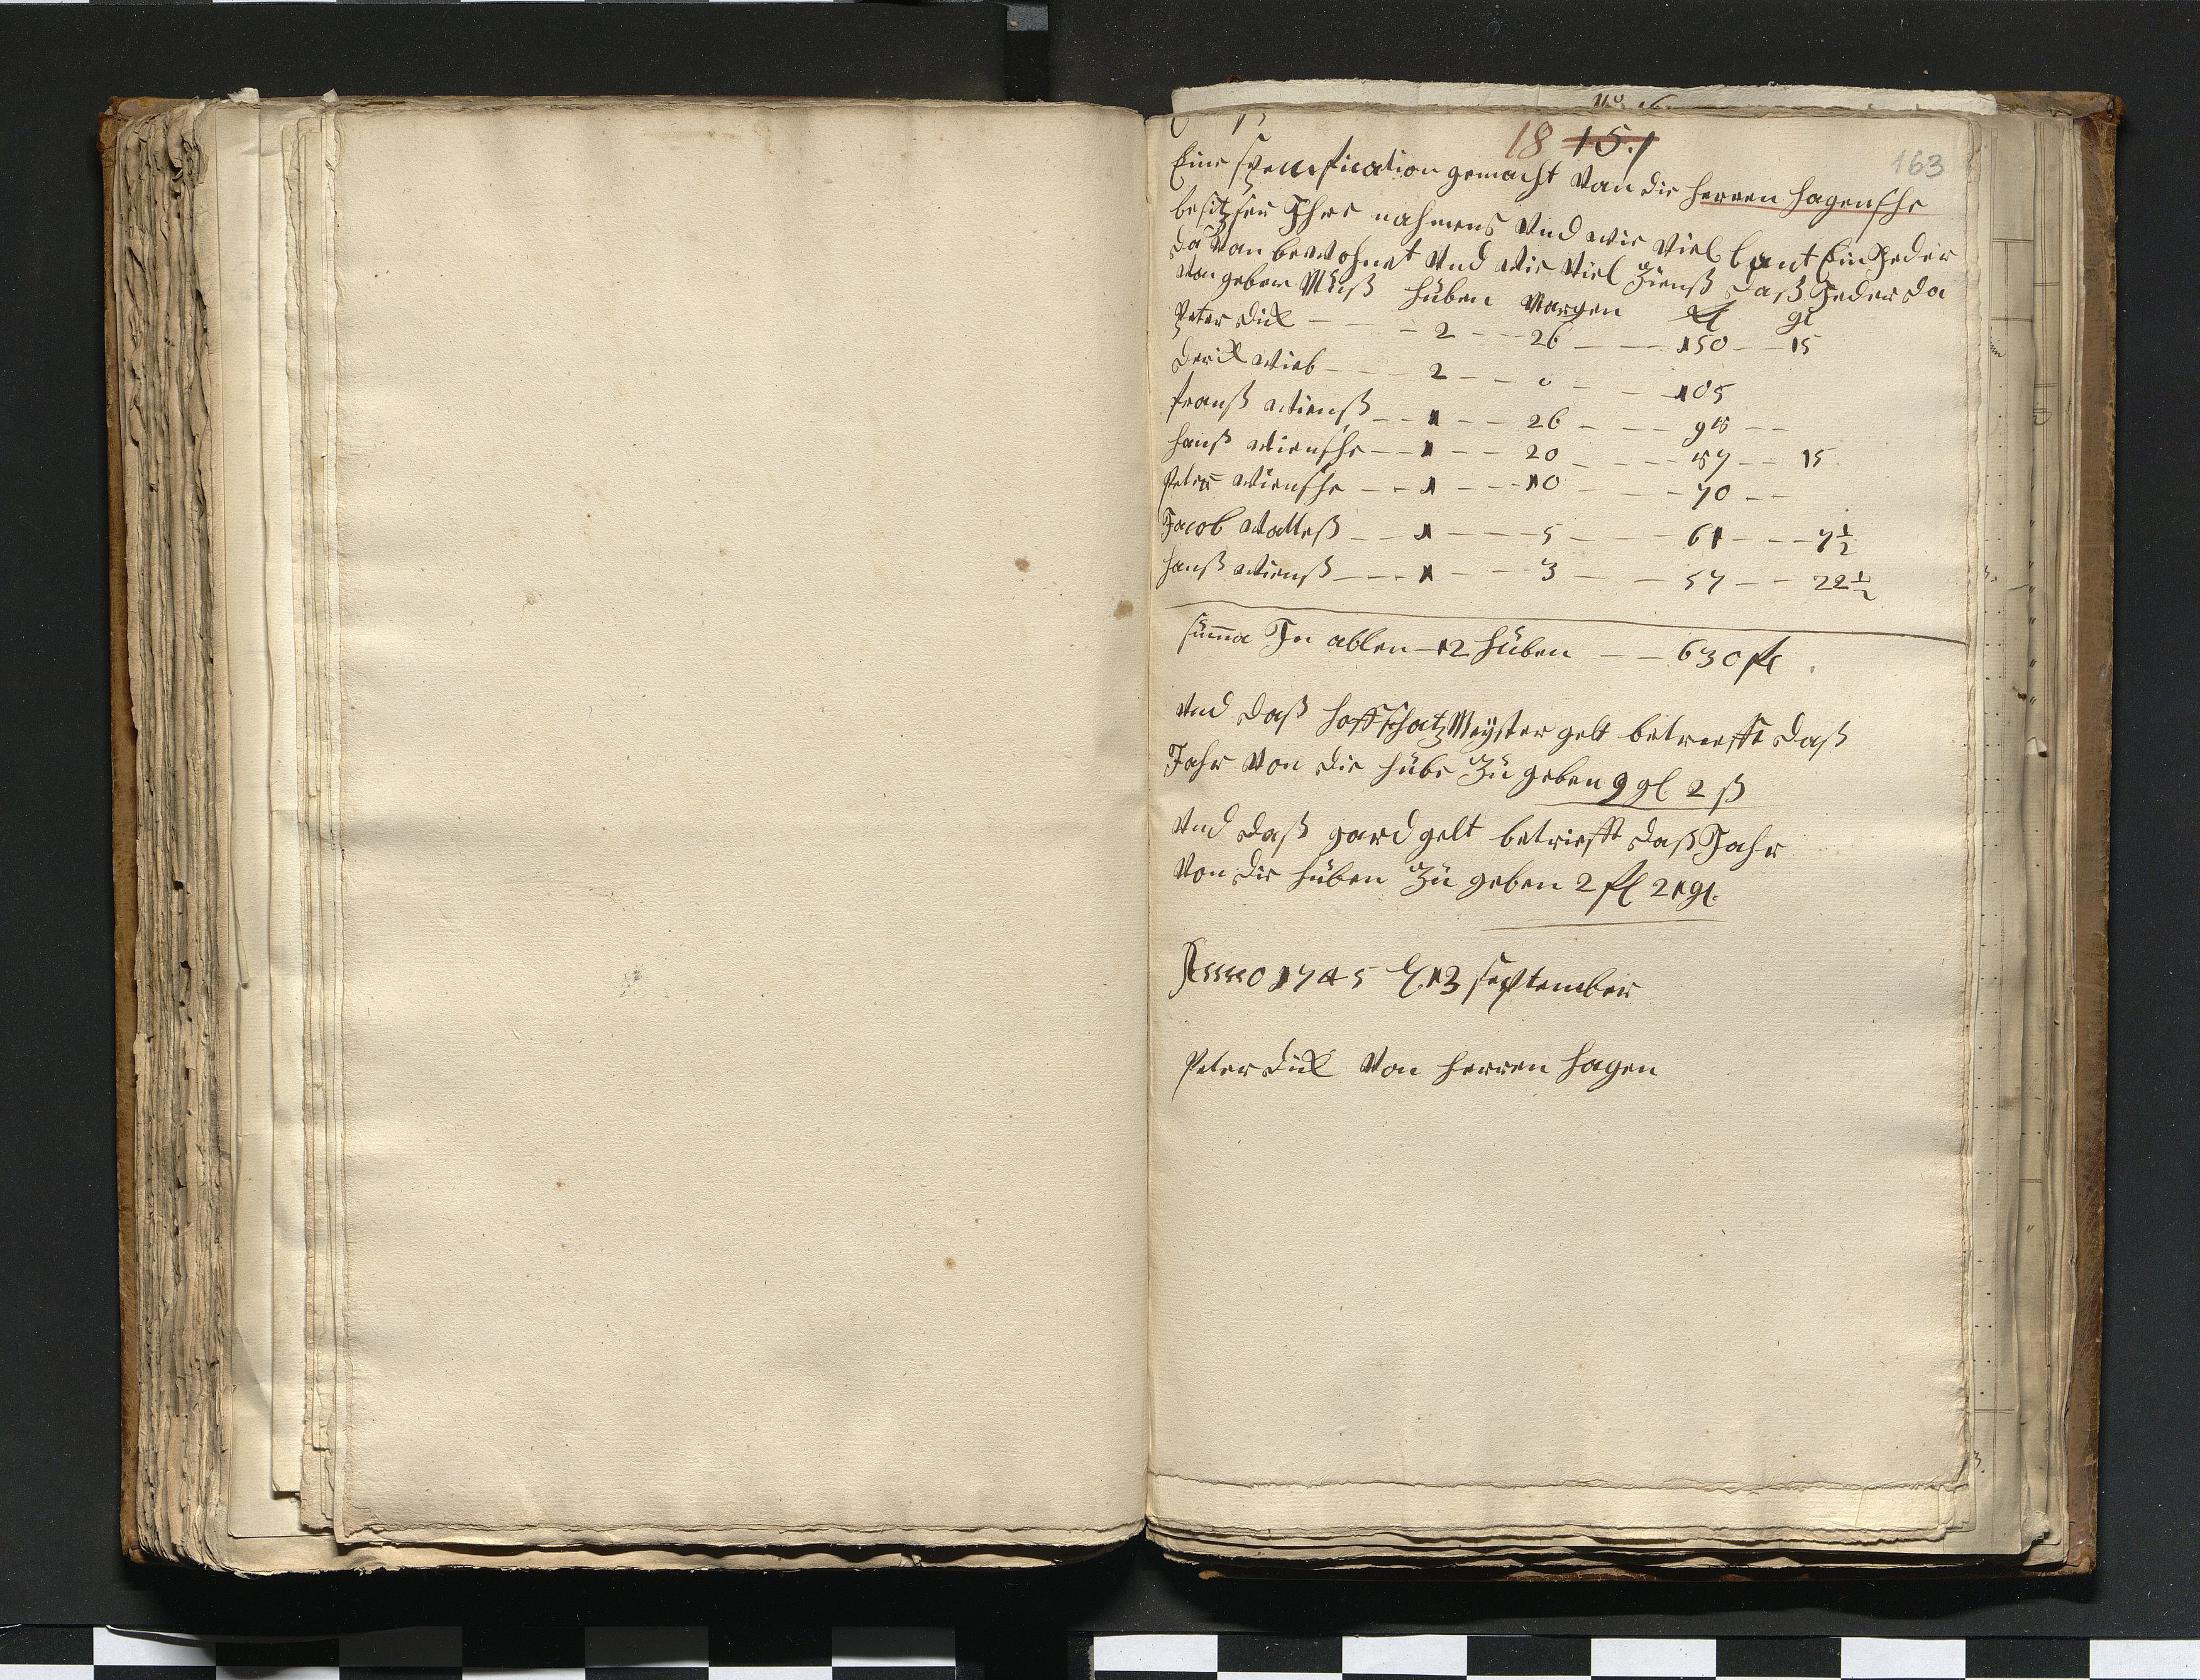 18 15.1
163
Eine specification gemacht Van die herren hagenshe
besitzser Ihre nahmens Vnd wie Viel Lant Ein Jeder
da Van bewohnet Vnd wie Viel Zienß daß Jeder da
Von geben Muß hüben Morgen fl gl
Peter dick - - - 2 - - 26 - - - 150 - - 15
derick wieb - - - 2 - - 0 - - 105
franß wienß - - 1 - - 26 - - - 98 - -
hanß wienshe - - 1 - - 20 - - - 87 - - 15
Peter wienshe - - 1 - - 10 - - - 70 - -
Jacob walleß - - 1 - - - 5 - - - 61 - - - 7½
hanß wienß - - - 1 - - 3 - - 57 - - 22½
summa In allen - 12 hüben - - 630 fl
Vnd daß hoffschatz Meyster gelt betriefft daß
Jahr Von die hübe Zü geben 9 gl 2 ß
Vnd daß gard gelt betriefft daß Jahr
Von die hüben Zü geben 2 fl 21 gl.
Anno 1745 d. 13 september
Peter dick Von herren hagen